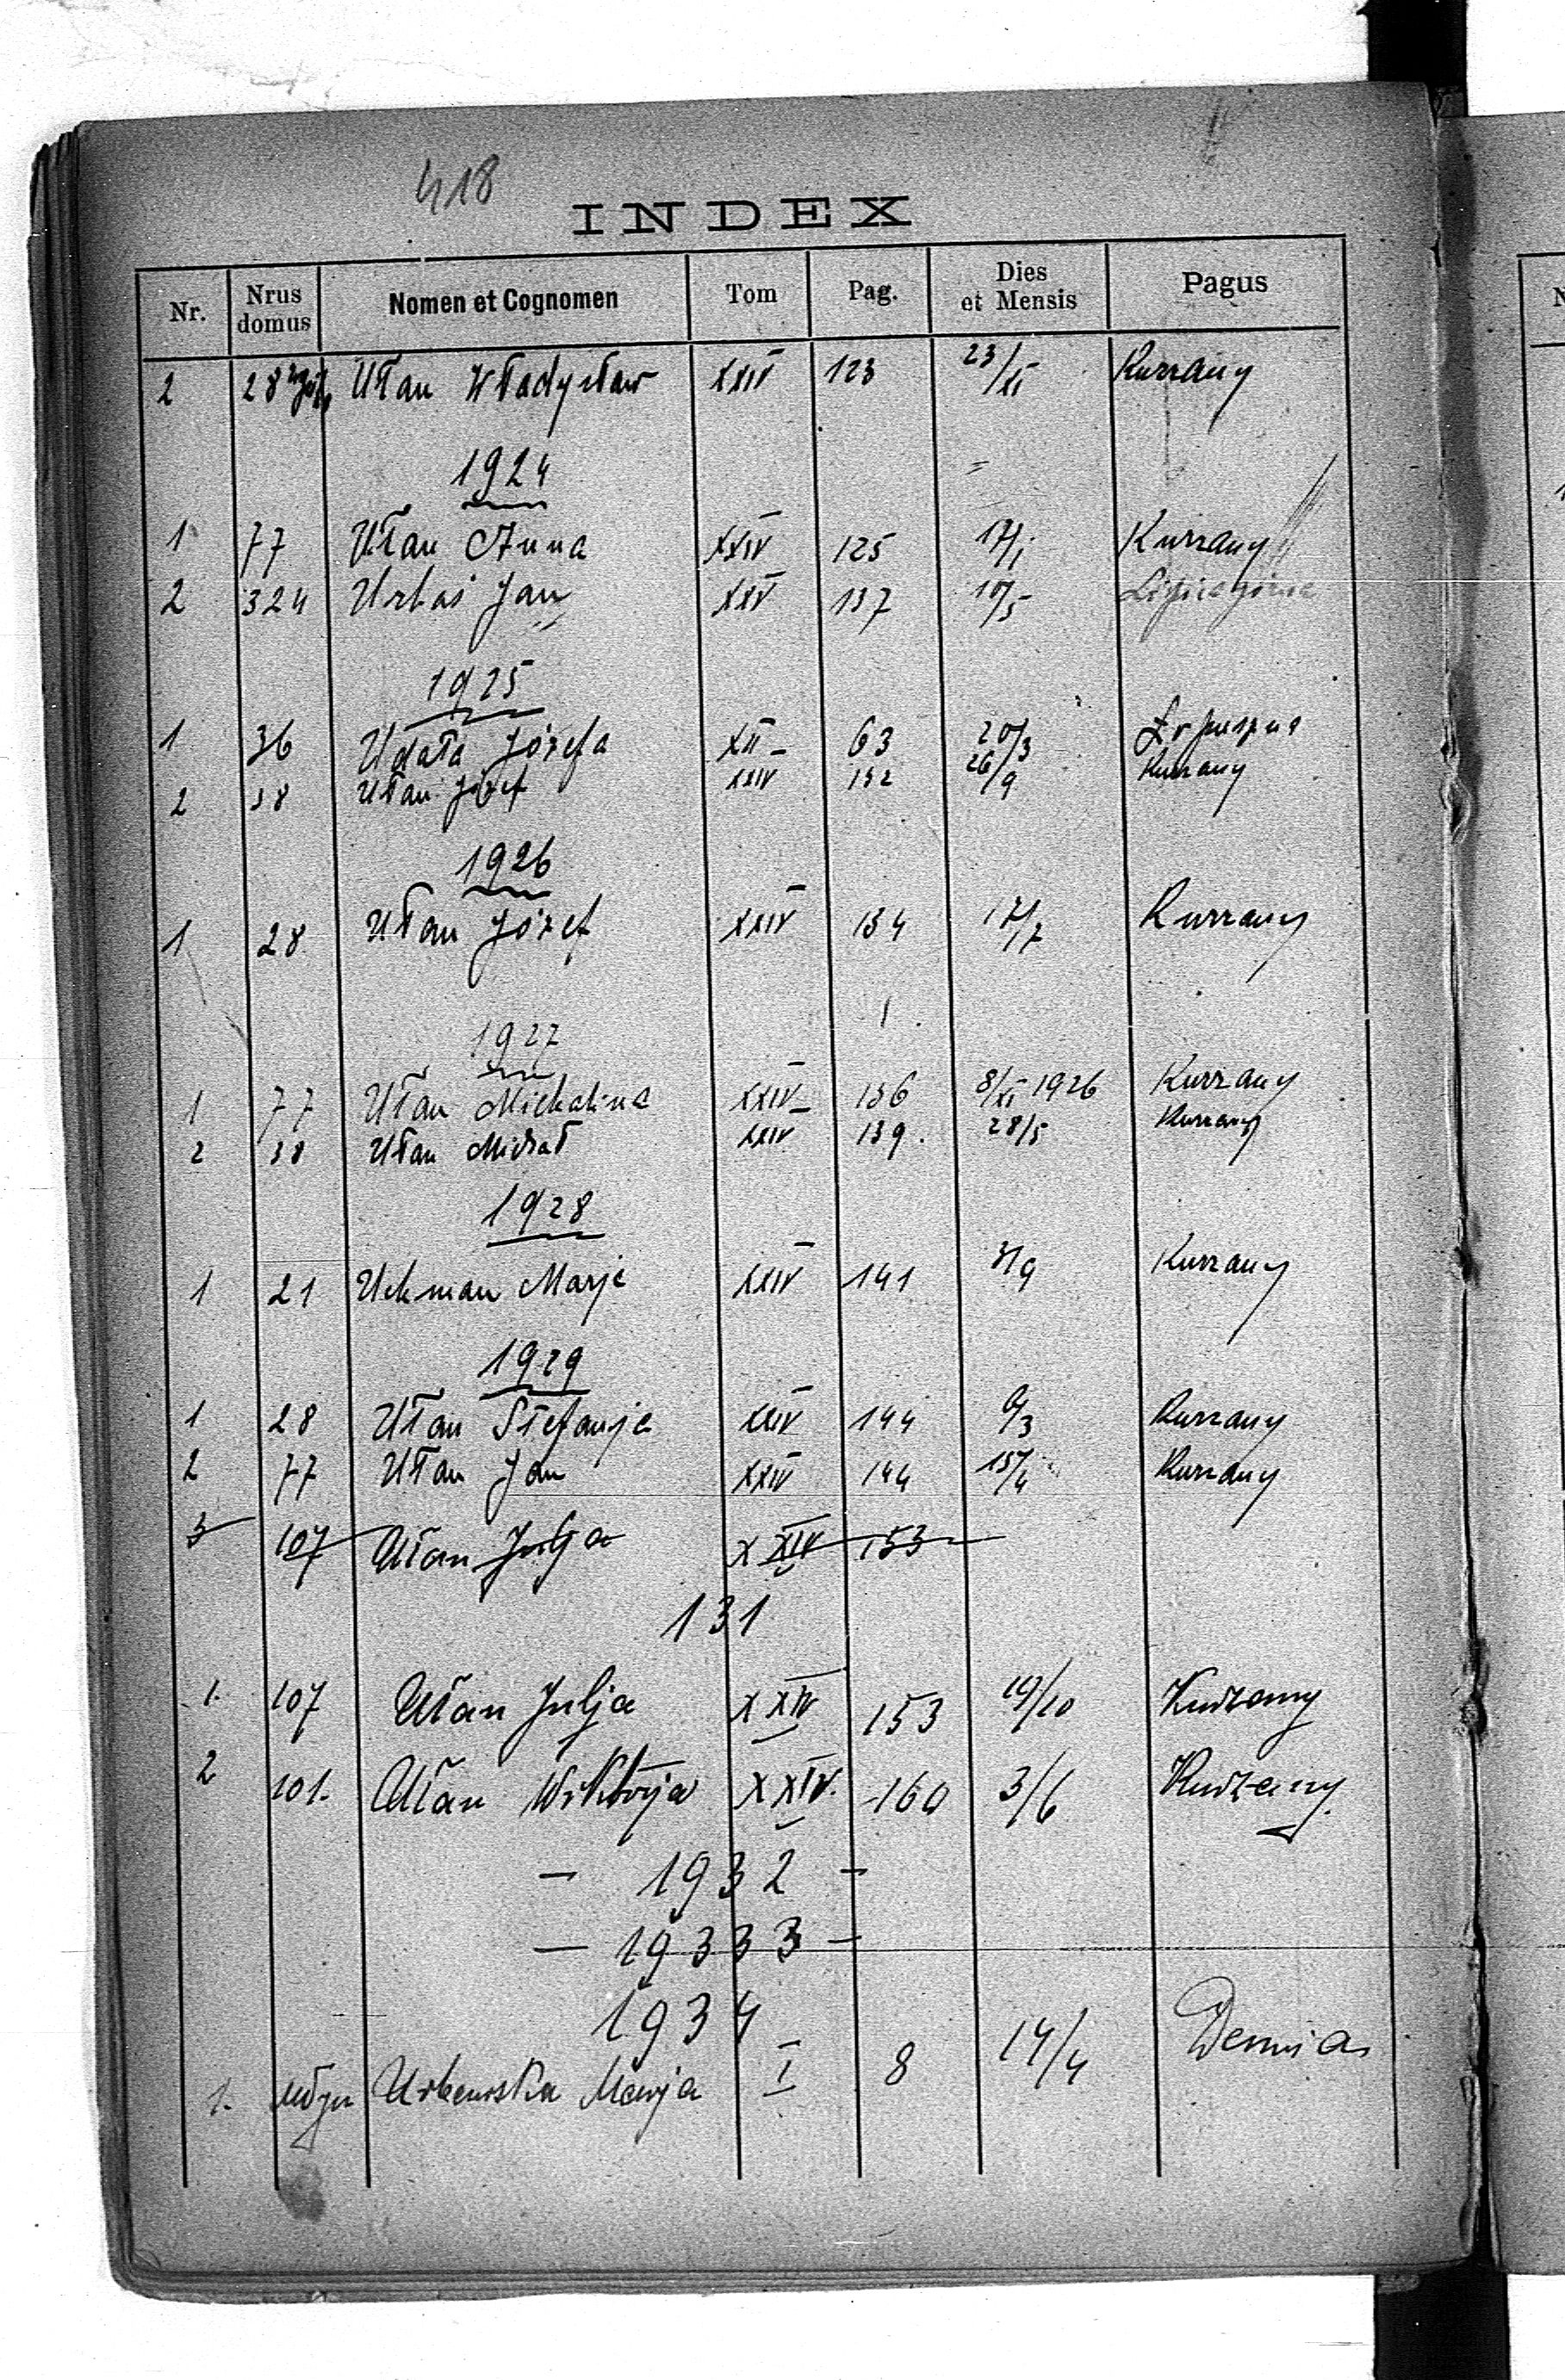 418
INDEX
Nr. Nrus domus Nomen et Cognomen Tom Pag. Dies et Mensis Pagus
2 28 Ułan Władysław XXIV 123 23/XI Kurzany
1924
1 77 Ułan Anna XXIV 125 17/I Kurzany
2 324 Urbaś Jan XXV 137 10/5
1925
1 36 Udała Józefa XII 63 20/3
2 38 Ułan Józef XXIV 132 26/9 Kurzany
1926
1 28 Ułan Józef XXIV 134 17/7 Kurzany
1927
1 77 Ułan Michalina XXIV 136 8/XI 1926 Kurzany
2 38 Ułan Michał XXIV 139. 28/5 Kurzany
1928
1 21 Uchman Marja XXIV 141 3/9 Kurzany
1929
1 28 Ułan Stefanja XXIV 144 6/3 Kurzany
2 77 Ułan Jan XXIV 144 15/4 Kurzany
3 107 Ułan Julja XXIV 153
131
1. 107 Ułan Julja XXIV 153 19/10 Kurzany
2 101. Ułan Wiktorja XXIV. 160 3/6 Kurzany
- 1932 -
- 19333 -
1934
1. Urbańska Marja I 8 14/4 Demnia